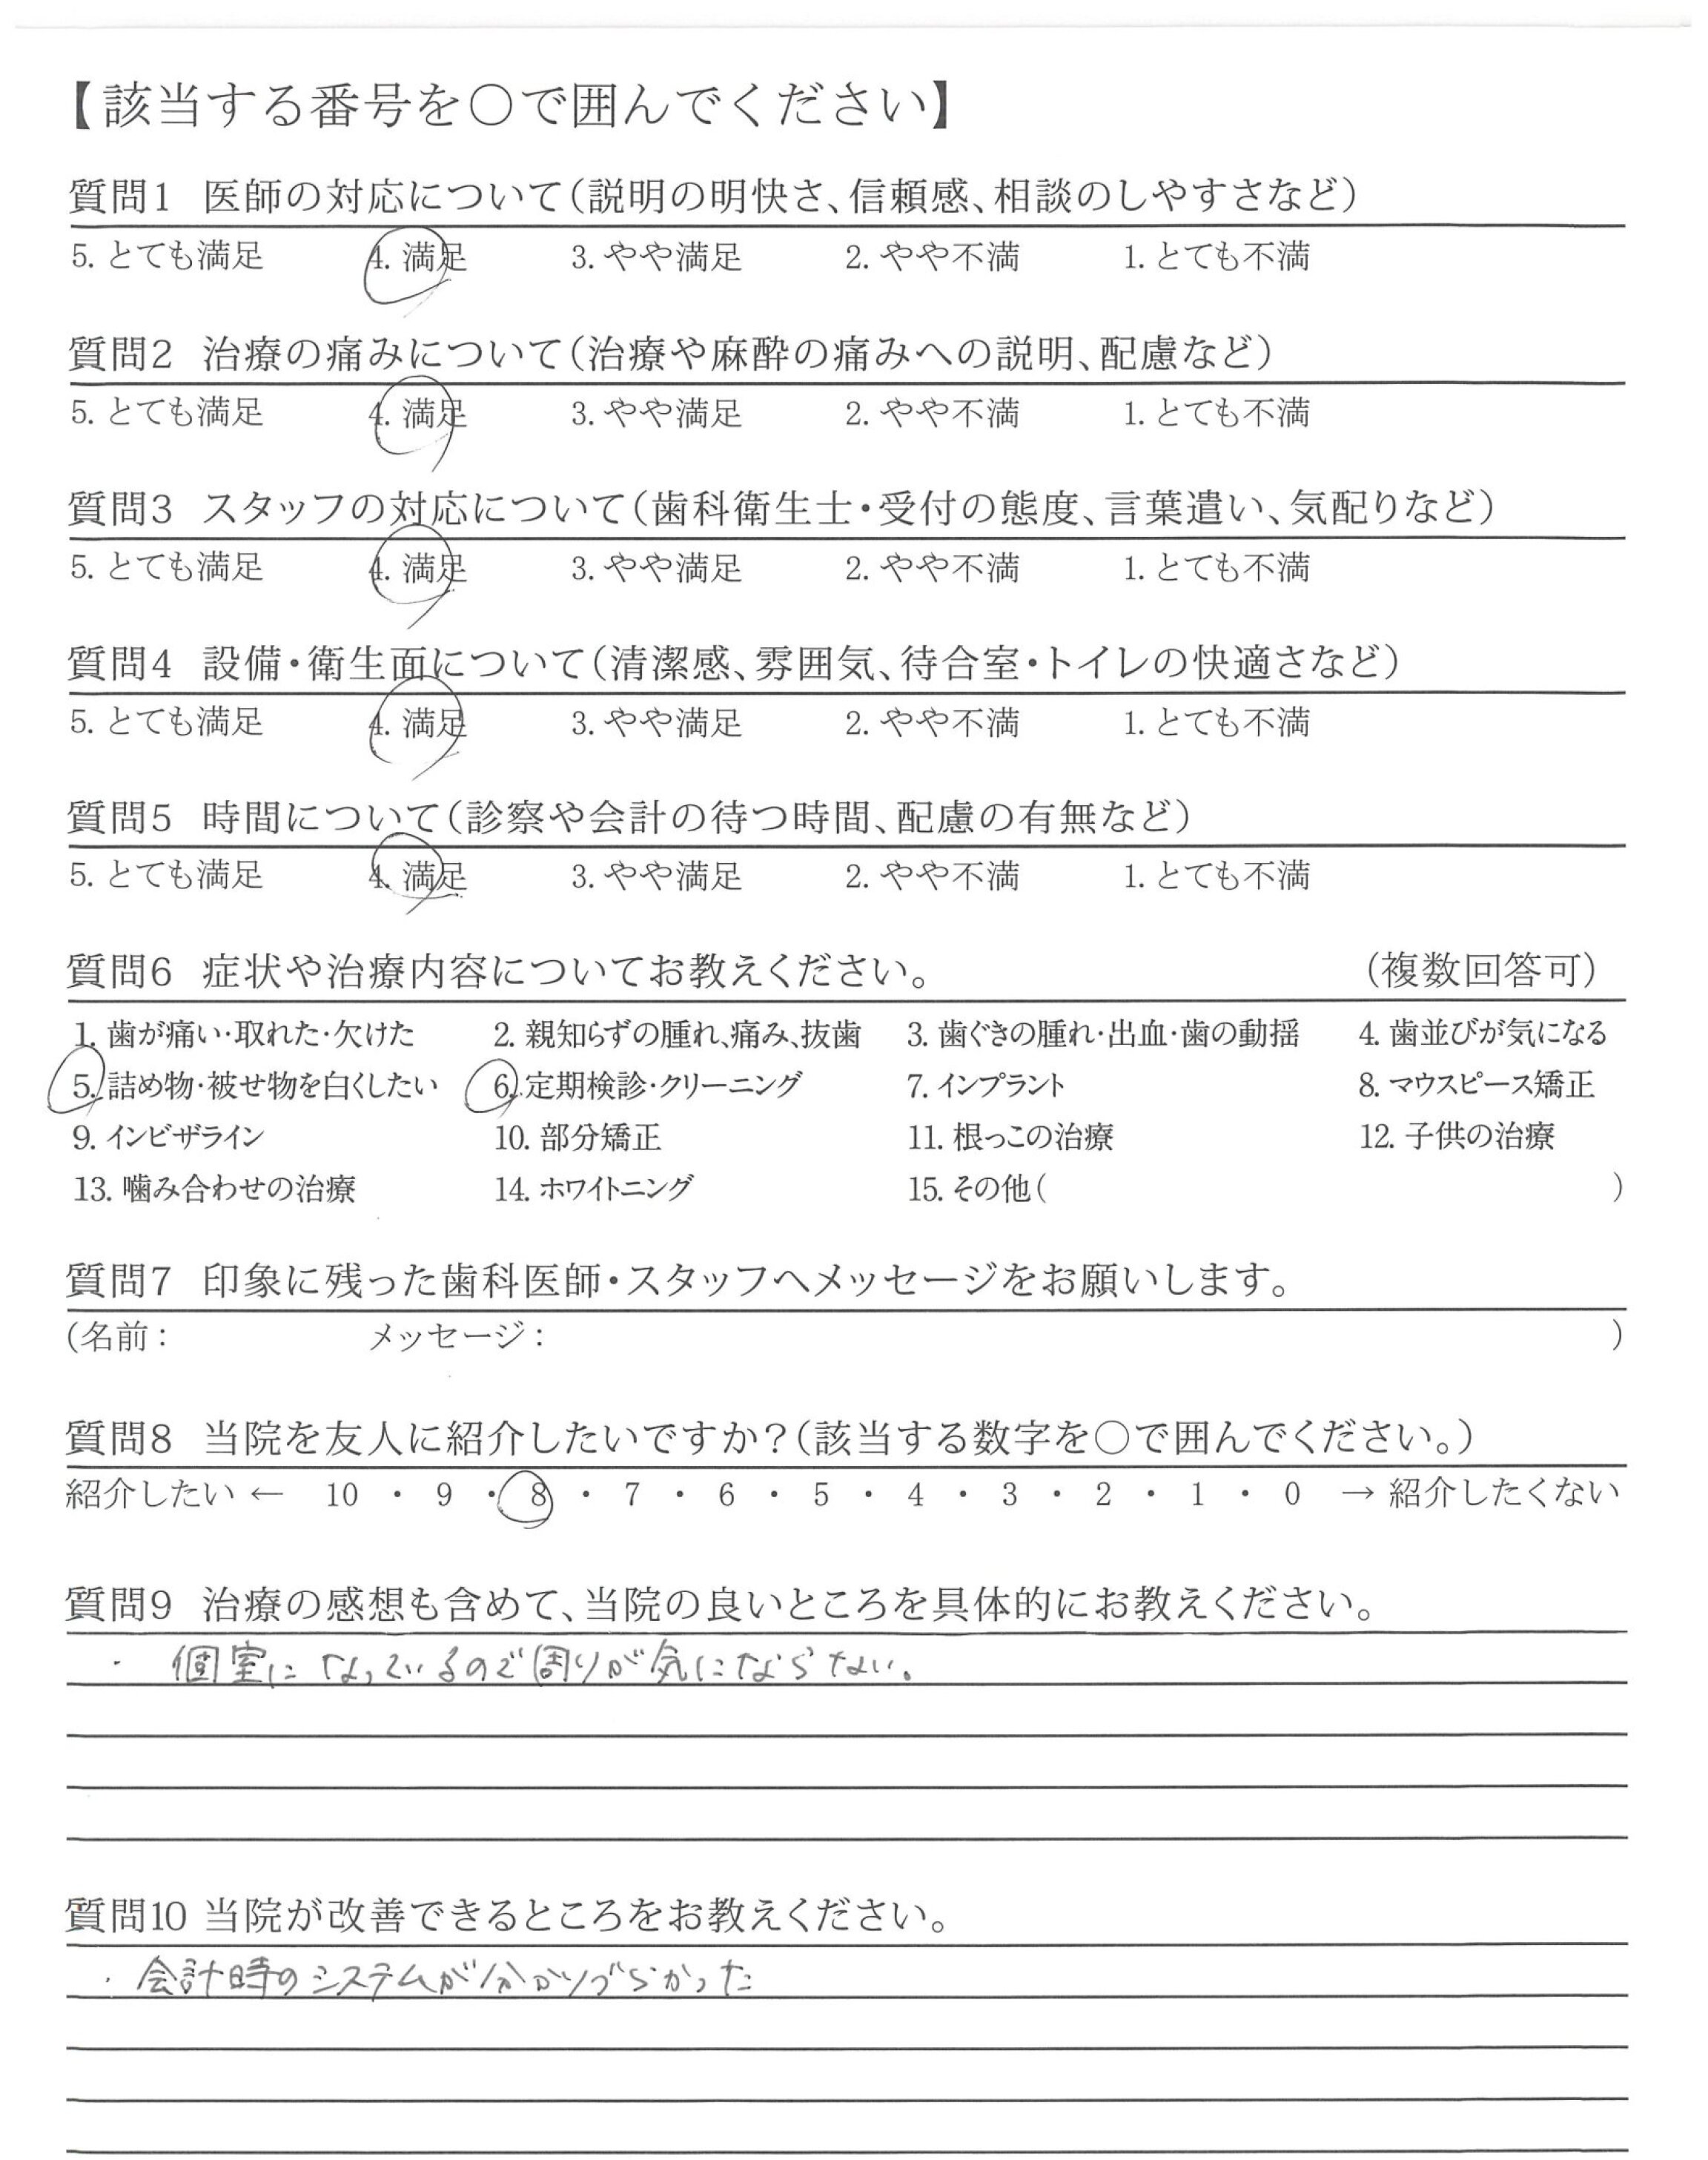 【該当する番号を〇で囲んでください】
質問1 医師の対応について(説明の明快さ、信頼感、相談のしやすさなど)
5. とても満足 4. 満足 3. やや満足 2. やや不満 1. とても不満
質問2 治療の痛みについて(治療や麻酔の痛みへの説明、配慮など)
5. とても満足 4. 満足 3. やや満足 2. やや不満 1. とても不満
質問3 スタッフの対応について(歯科衛生士・受付の態度、言葉遣い、気配りなど)
5. とても満足 4. 満足 3. やや満足 2. やや不満 1. とても不満
質問4 設備・衛生面について(清潔感、雰囲気、待合室・トイレの快適さなど)
5. とても満足 4. 満足 3. やや満足 2. やや不満 1. とても不満
質問5 時間について(診察や会計の待つ時間、配慮の有無など)
5. とても満足 4. 満足 3. やや満足 2. やや不満 1. とても不満
質問6 症状や治療内容についてお教えください。 (複数回答可)
1. 歯が痛い・取れた・欠けた 2. 親知らずの腫れ、痛み、抜歯 3. 歯ぐきの腫れ・出血・歯の動揺 4. 歯並びが気になる
5. 詰め物・被せ物を白くしたい 6. 定期検診・クリーニング 7. インプラント 8. マウスピース矯正
9. インビザライン 10. 部分矯正 11. 根っこの治療 12. 子供の治療
13. 噛み合わせの治療 14. ホワイトニング 15. その他( )
質問7 印象に残った歯科医師・スタッフへメッセージをお願いします。
(名前: メッセージ: )
質問8 当院を友人に紹介したいですか?(該当する数字を〇で囲んでください。)
紹介したい ← 10 ・ 9 ・ 8 ・ 7 ・ 6 ・ 5 ・ 4 ・ 3 ・ 2 ・ 1 ・ 0 → 紹介したくない
質問9 治療の感想も含めて、当院の良いところを具体的にお教えください。
・ 個室になっているので周りが気にならない。
質問10 当院が改善できるところをお教えください。
・ 会計時のシステムが分かりづらかった